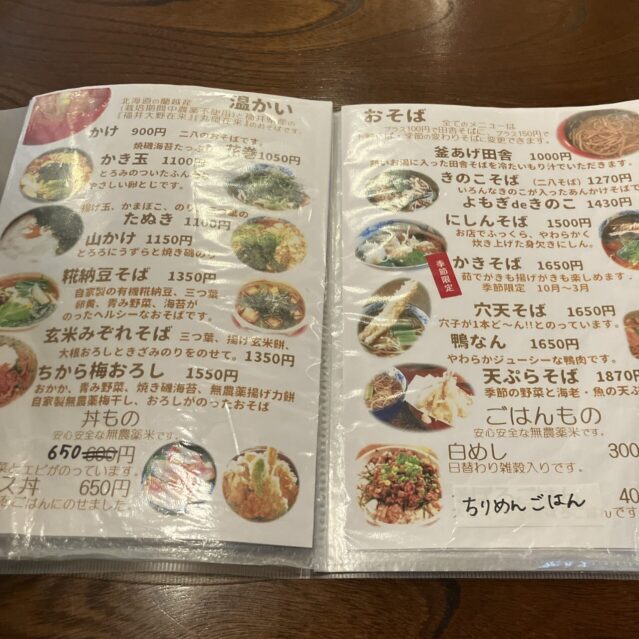 温かい
北海道の蘭越産
(栽培期間中農薬不使用)と福井県産の
『福井大野在来』『丸岡在来』のおそばです。
かけ 900円 二八のおそばです。
焼磯海苔たっぷり 花巻1050円
かき玉 1100円
とろみのついたふん
やさしい卵とじです。
揚げ玉、かまぼこ、のり
たぬき 1100円
山かけ 1150円
とろろにうずらと焼き磯のり
糀納豆そば 1350円
自家製の有機糀納豆、三つ葉
卵育、青み野菜、海苔が
のったヘルシーなおそばです。
玄米みぞれそば 三つ葉、揚げ玄米餅、
大根おろしときざみのりをのせて。1350円
ちから梅おろし 1550円
おかか、青み野菜、焼き磯海苔、無農薬揚げ力餅
自家製無農薬梅干し、おろしがのったおそば
丼もの
安心安全な無農薬米です。
650 600円
菜とエビがのっています。
ス丼 650円
をごはんにのせました。
おそば
全てのメニューは
プラス100円で田舎そばに、プラス150円で
季節の変わりそばに変更できます。
釜あげ田舎 1000円
熱いお湯に入った田舎そばを冷たいもり汁でいただきます。
きのこそば (二八そば) 1270円
いろんなきのこが入ったあんかけそば
よもぎdeきのこ 1430円
にしんそば 1500円
お店でふっくら、やわらかく
炊き上げた身欠きにしん。
季節限定
かきそば 1650円
茹でかきも揚げがきも楽しめます。
季節限定 10月〜3月
穴天そば 1650円
穴子が1本ど〜ん!!とのっています。
鴨なん 1650円
やわらかジューシーな鴨肉です。
天ぷらそば 1870円
季節の野菜と海老・魚の天ぷ
ごはんもの
安心安全な無農薬米です。
白めし 300
日替わり雑穀入りです。
ちりめんごはん 40
です